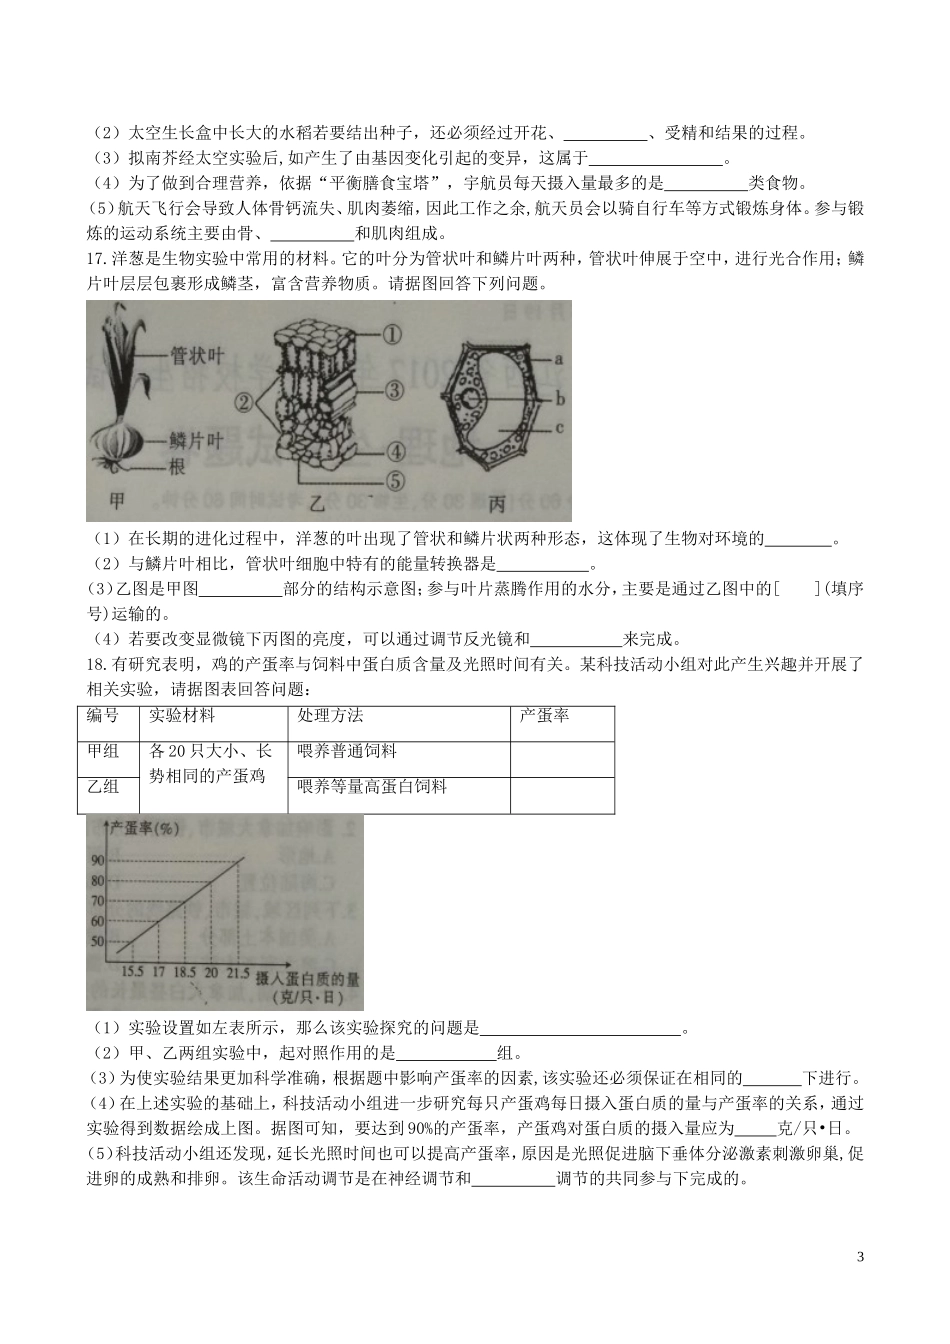 （2）太空生长盒中长大的水稻若要结出种子，还必须经过开花、__________、受精和结果的过程。
（3）拟南芥经太空实验后,如产生了由基因变化引起的变异，这属于________________。
（4）为了做到合理营养，依据“平衡膳食宝塔”，宇航员每天摄入量最多的是__________类食物。
（5）航天飞行会导致人体骨钙流失、肌肉萎缩，因此工作之余,航天员会以骑自行车等方式锻炼身体。参与锻
炼的运动系统主要由骨、__________和肌肉组成。
17.洋葱是生物实验中常用的材料。它的叶分为管状叶和鳞片叶两种，管状叶伸展于空中，进行光合作用；鳞
片叶层层包裹形成鳞茎，富含营养物质。请据图回答下列问题。
管状叶
鳞片叶
根
甲
①
②
③
④
⑤
乙
a
b
c
丙
（1）在长期的进化过程中，洋葱的叶出现了管状和鳞片状两种形态，这体现了生物对环境的________。
（2）与鳞片叶相比，管状叶细胞中特有的能量转换器是___________。
（3）乙图是甲图__________部分的结构示意图；参与叶片蒸腾作用的水分，主要是通过乙图中的[    ](填序
号)运输的。
（4）若要改变显微镜下丙图的亮度，可以通过调节反光镜和___________来完成。
18.有研究表明，鸡的产蛋率与饲料中蛋白质含量及光照时间有关。某科技活动小组对此产生兴趣并开展了
相关实验，请据图表回答问题：
编号 实验材料 处理方法 产蛋率
甲组 各 20 只大小、长势相同的产蛋鸡 喂养普通饲料
乙组 喂养等量高蛋白饲料
产蛋率(%)
90
80
70
60
50
15.5 17 18.5 20 21.5 摄入蛋白质的量
(克/只·日)
（1）实验设置如左表所示，那么该实验探究的问题是________________________。
（2）甲、乙两组实验中，起对照作用的是____________组。
（3）为使实验结果更加科学准确，根据题中影响产蛋率的因素,该实验还必须保证在相同的_______下进行。
（4）在上述实验的基础上，科技活动小组进一步研究每只产蛋鸡每日摄入蛋白质的量与产蛋率的关系，通过
实验得到数据绘成上图。据图可知，要达到 90%的产蛋率，产蛋鸡对蛋白质的摄入量应为_____克/只•日。
（5）科技活动小组还发现，延长光照时间也可以提高产蛋率，原因是光照促进脑下垂体分泌激素刺激卵巢,促
进卵的成熟和排卵。该生命活动调节是在神经调节和__________调节的共同参与下完成的。
3